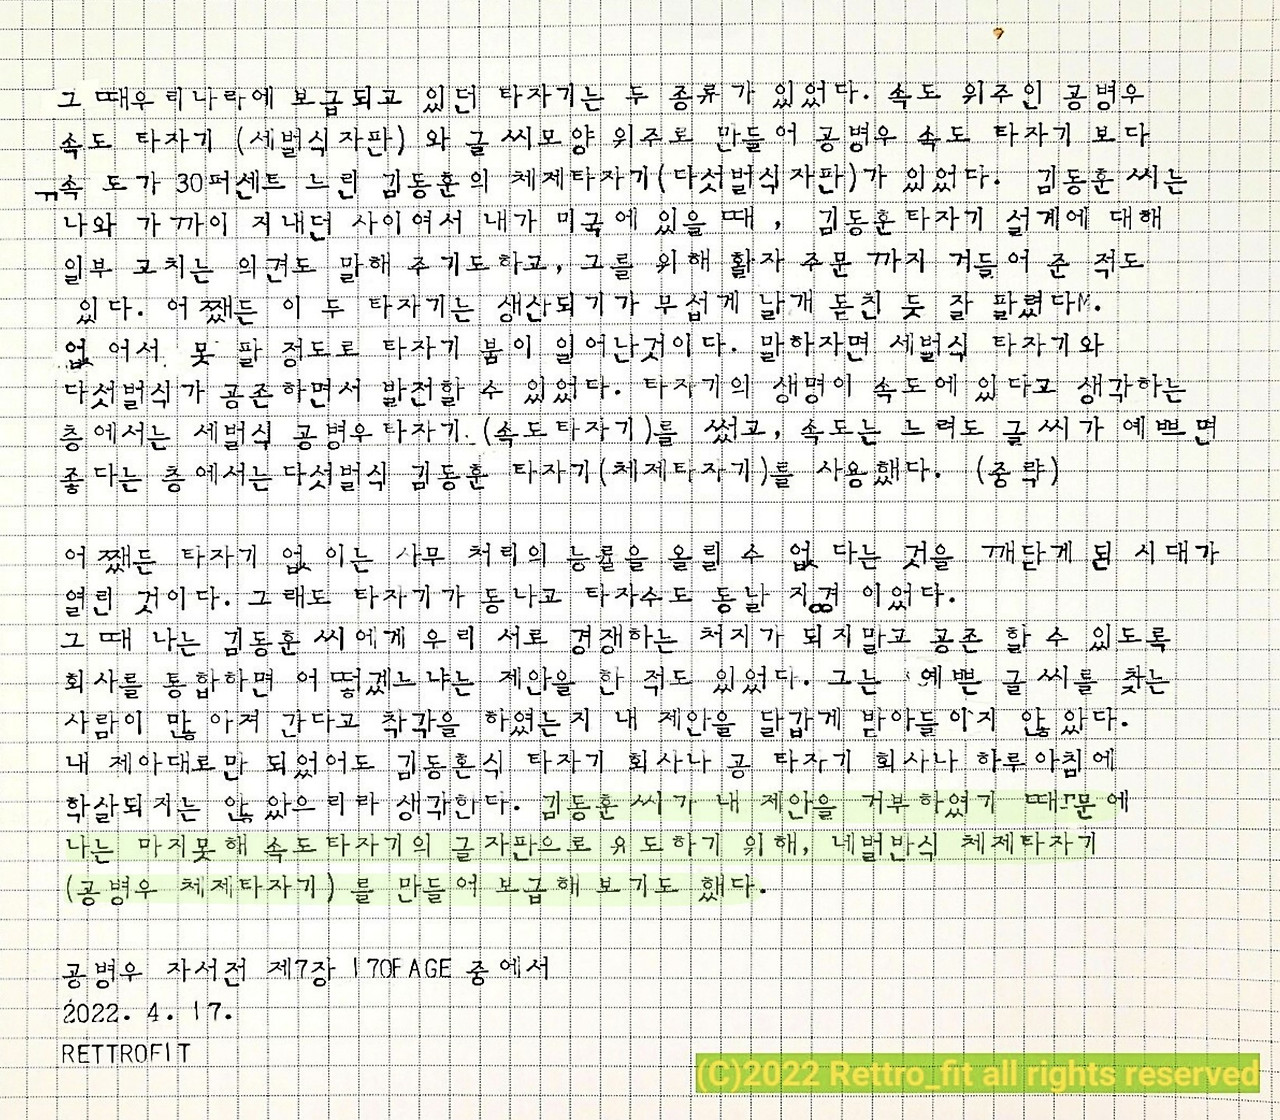 그 때우리나라에 보급되고 있던 타자기는 두 종류가 있었다. 속도 위주인 공병우
속도 타자기 (세벌식자판) 와 글씨모양 위주로 만들어 공병우 속도 타자기 보다
속 도가 30퍼센트 느린 김동훈의 체제타자기(다섯벌식자판)가 있었다. 김동훈씨는
나와 가까이 지내던 사이여서 내가 미국에 있을 때, 김동훈타자기 설계에 대해
일부 고치는 의견도 말해 주기도하고, 그를 위해 활자 주문까지 거들어 준 적도
있다. 어쨌든 이 두 타자기는 생산되기가 무섭게 날개 돋친 듯 잘 팔렸다.
없어서 못 팔 정도로 타자기 붐이 일어난것이다. 말하자면 세벌식 타자기와
다섯벌식가 공존하면서 발전할 수 있었다. 타자기의 생명이 속도에 있다고 생각하는
층에서는 세벌식 공병우타자기.(속도타자기)를 썼고, 속도는 느려도 글씨가 예쁘면
좋다는 층에서는다섯벌식 김동훈 타자기(체제타자기)를 사용했다. (중략)
어쨌든 타자기 없이는 사무 처리의 능률을 올릴 수 없다는 것을 깨닫게 된 시대가
열린 것이다. 그래도 타자기가 동나고 타자수도 동날 지경이었다.
그 때 나는 김동훈씨에게 우리 서로 경쟁하는 처지가 되지말고 공존 할 수 있도록
회사를 통합하면 어떻겠느냐는 제안을 한 적도 있었다. 그는 예쁜 글씨를 찾는
사람이 많아져 간다고 착각을 하였는지 내 제안을 달갑게 받아들이지 않았다.
내 제아대로만 되었어도 김동훈식 타자기 회사나 공 타자기 회사나 하루아침에
학살되지는 않았으리라 생각한다. 김동훈씨가 내 제안을 거부하였기 때문에
나는 마지못해 속도타자기의 글자판으로 유도하기 위해, 네벌반식 체제타자기
(공병우 체제타자기) 를 만들어 보급해 보기도 했다.
공병우 자서전 제7장 170FAGE 중에서
2022. 4. 17.
RETTROFIT
(C)2022 Rettro_fit all rights reserved